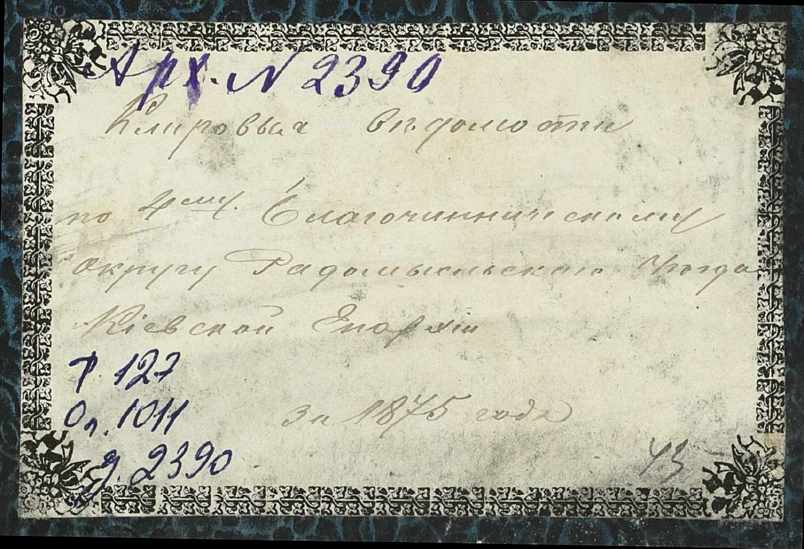 Арх. N 2390
Клировыя вѣдомости
по 4му. благочинническому
округу Радомысльскаго Уѣзда
Кіевской Епархіи
Ф. 127
за 1875 годъ
Оп. 1011
д. 2390
43